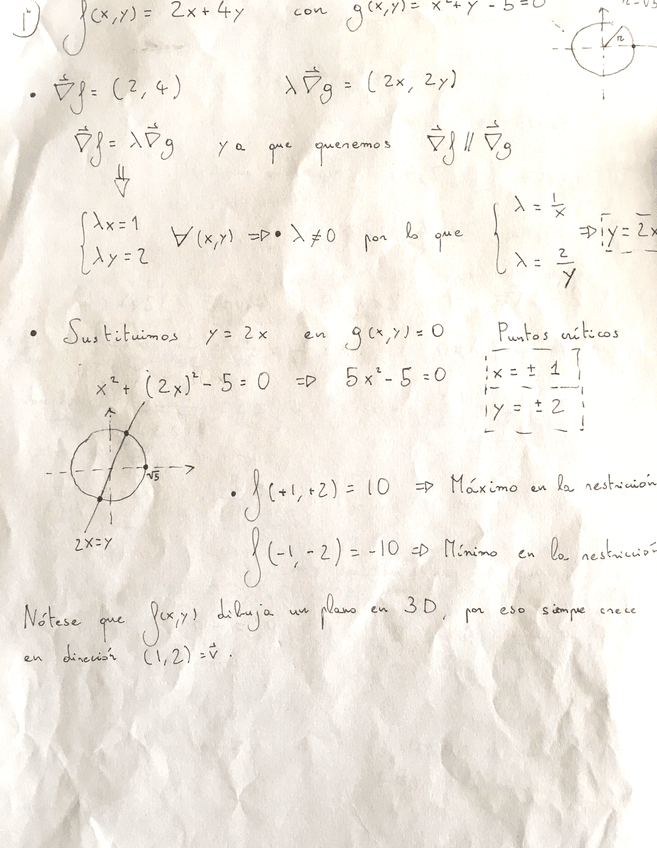 1) f(x,y) = 2x + 4y con g(x,y) = x² + y² - 5 = 0
r
• ∇f = (2, 4) λ∇g = (2x, 2y)
∇f = λ∇g ya que queremos ∇f // ∇g
⇓
{ λx = 1 λy = 2 ∀(x,y) ⇒ • λ ≠ 0 por lo que { λ = 1/x λ = 2/y ⇒ y = 2x
• Sustituimos y = 2x en g(x,y) = 0 Puntos críticos
x² + (2x)² - 5 = 0 ⇒ 5x² - 5 = 0 x = ± 1
y = ± 2
√5
2x=y
• f(+1, +2) = 10 ⇒ Máximo en la restricción
f(-1, -2) = -10 ⇒ Mínimo en la restricción
Nótese que f(x,y) dibuja un plano en 3D, por eso siempre crece
en dirección (1,2) = v⃗.